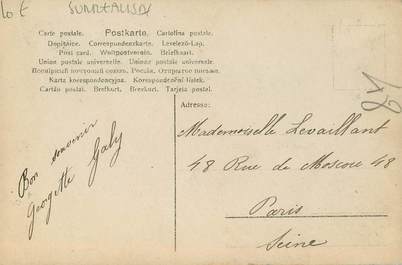 10 €
SURREALISM
Carte postale. Postkarte. Cartolina postale.
Dopisnice. Correspondenzkarte. Levelező-Lap.
Post card. Weltpostverein. Briefkaart.
Union postale universelle. Unione postale universale.
Karta korespondencyjna. Korespondenční lístek.
Cartão postal. Brefkort. Brevkort. Tarjeta postal.
Adresse:
Mademoiselle Levaillant
48 Rue de Moscou 48
Paris
Seine
Bon souvenir
Georgette Galy